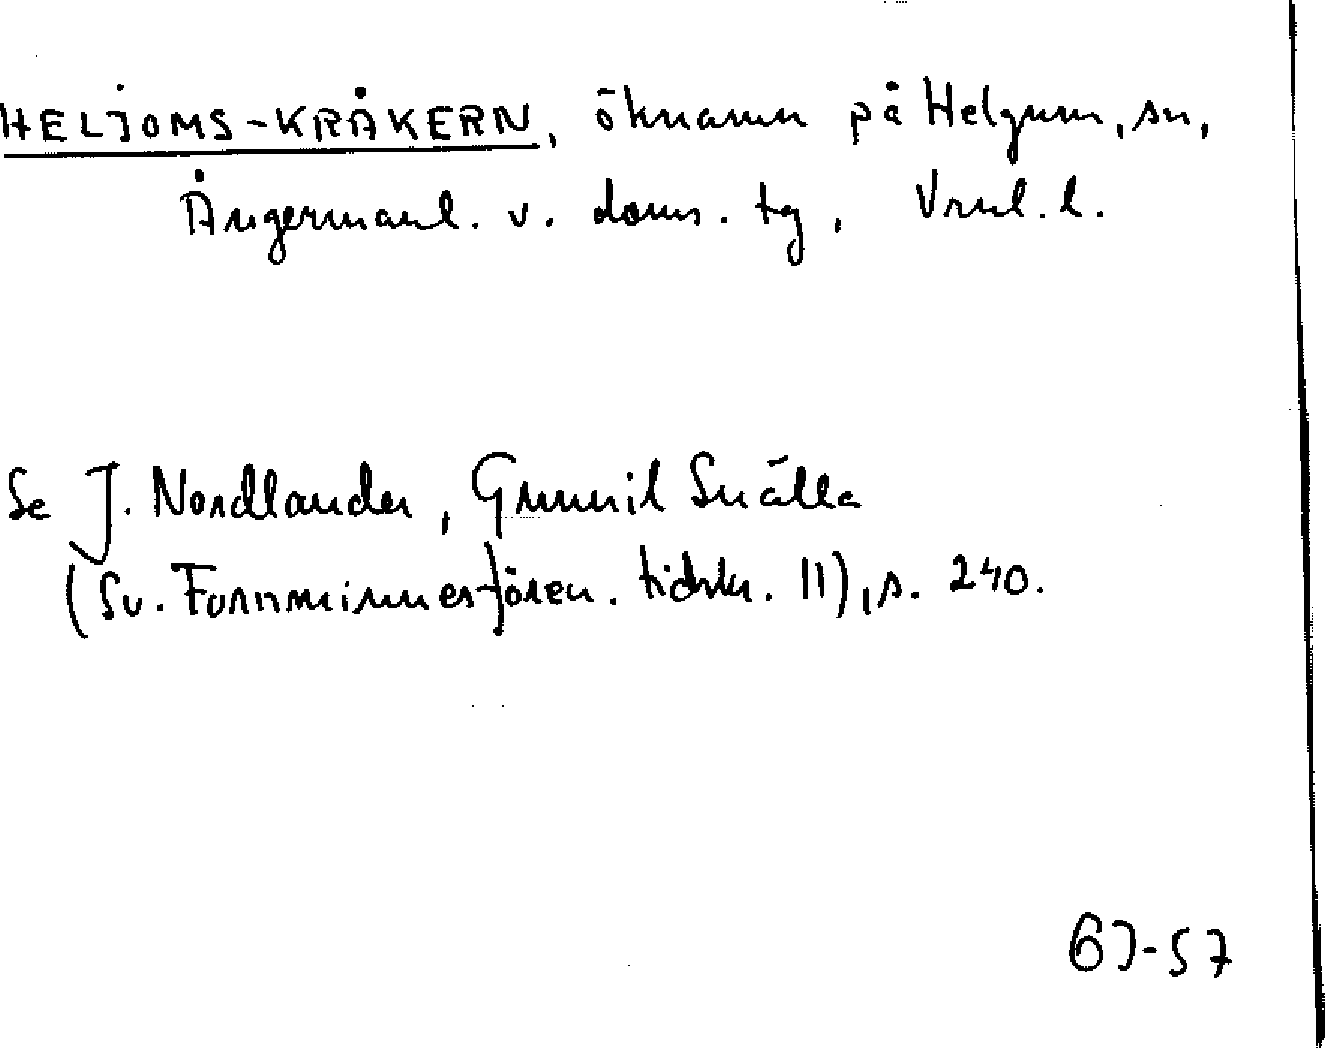 HELJOMS-KRÅKERN, öknamn på Helgum, sn,
Ångermanl. v. doms. tg, Vrnl. l.
Se J. Nordlander, Gunnil Snälla
(Sv. Fornminnesfören. tidskr. 11), s. 240.
BJ-57